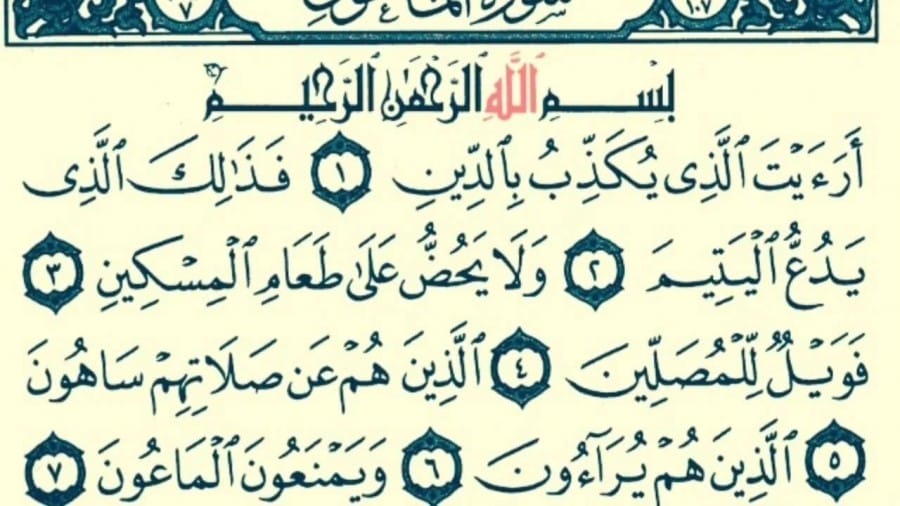 ٧ سورة الماعون ١٠٧
بِسْمِ ٱللَّهِ ٱلرَّحْمَٰنِ ٱلرَّحِيمِ
أَرَءَيْتَ ٱلَّذِى يُكَذِّبُ بِٱلدِّينِ ١ فَذَٰلِكَ ٱلَّذِى
يَدُعُّ ٱلْيَتِيمَ ٢ وَلَا يَحُضُّ عَلَىٰ طَعَامِ ٱلْمِسْكِينِ ٣
فَوَيْلٌ لِّلْمُصَلِّينَ ٤ ٱلَّذِينَ هُمْ عَن صَلَاتِهِمْ سَاهُونَ
٥ ٱلَّذِينَ هُمْ يُرَآءُونَ ٦ وَيَمْنَعُونَ ٱلْمَاعُونَ ٧